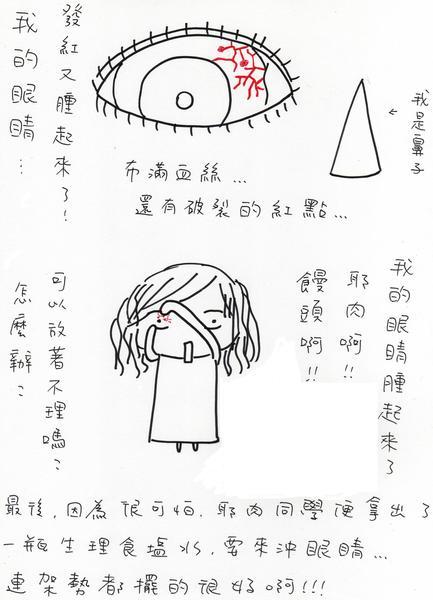 我的眼睛…
發紅又腫起來了!
布滿血絲…
還有破裂的紅點…
←我是鼻子
我的眼睛腫起來了
耶肉啊!!
饅頭啊!!
可以放著不理嗎?
怎麼辦?
最後,因為很可怕,耶肉同學便拿出了
一瓶生理食塩水,要來沖眼睛…
連架勢都擺的很好啊!!!